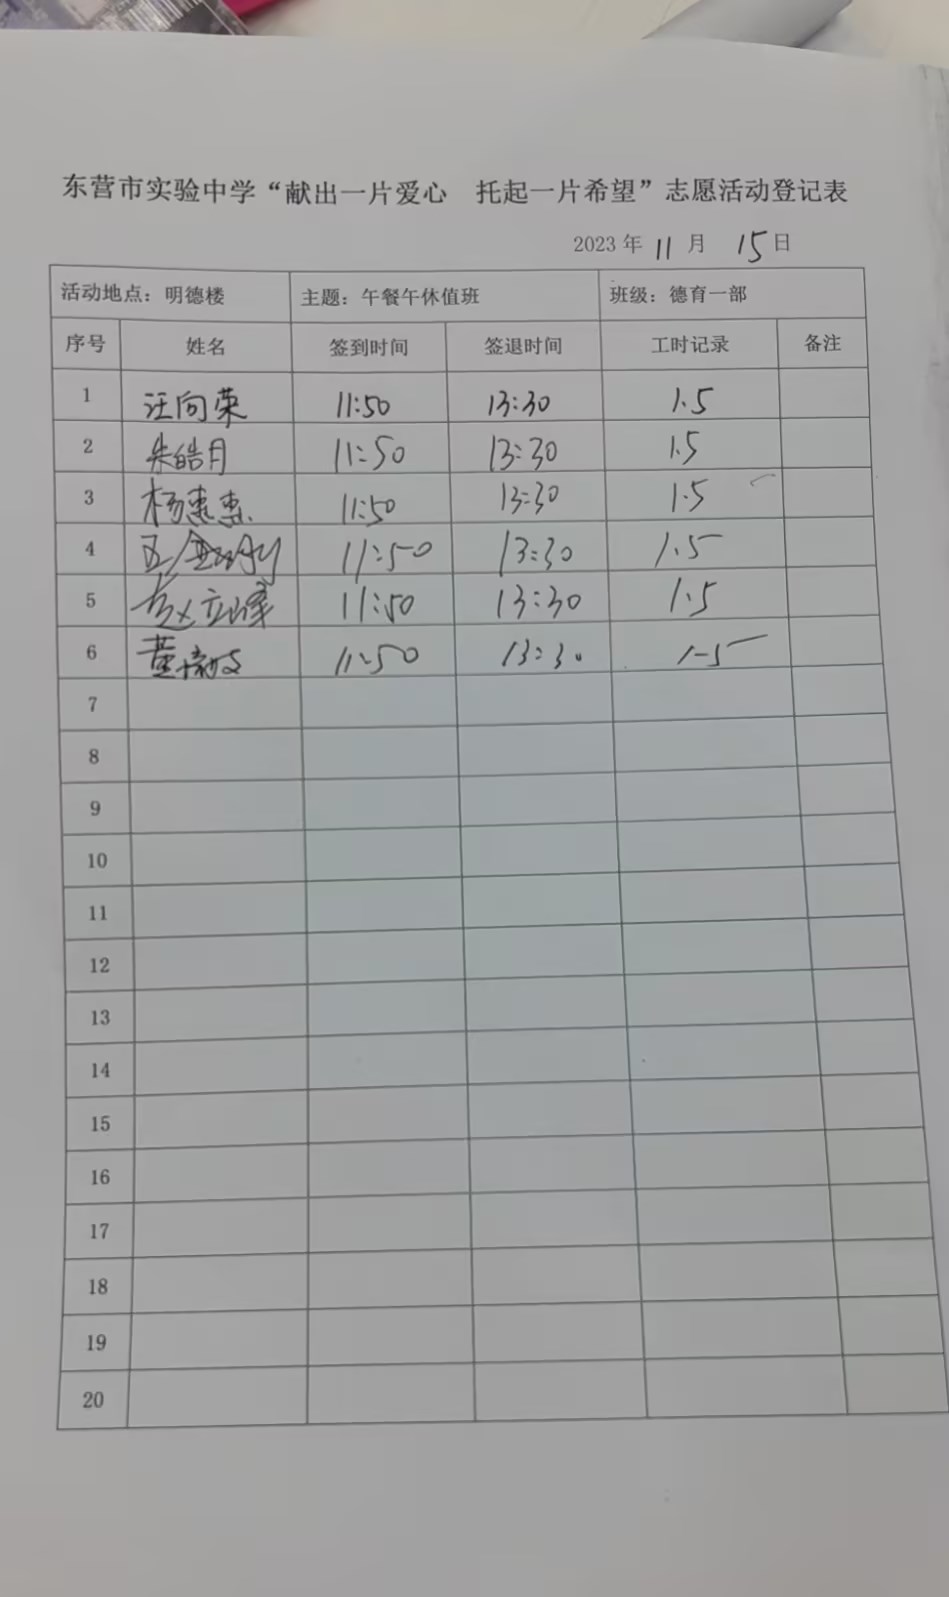 东营市实验中学“献出一片爱心 托起一片希望”志愿活动登记表
2023 年 11 月 15 日
活动地点：明德楼 主题：午餐午休值班 班级：德育一部
序号 姓名 签到时间 签退时间 工时记录 备注
1 汪向荣 11:50 13:30 1.5
2 朱皓月 11:50 13:30 1.5
3 杨惠惠 11:50 13:30 1.5
4 11:50 13:30 1.5
5 赵立峰 11:50 13:30 1.5
6 董 11:50 13:30 1.5
7
8
9
10
11
12
13
14
15
16
17
18
19
20